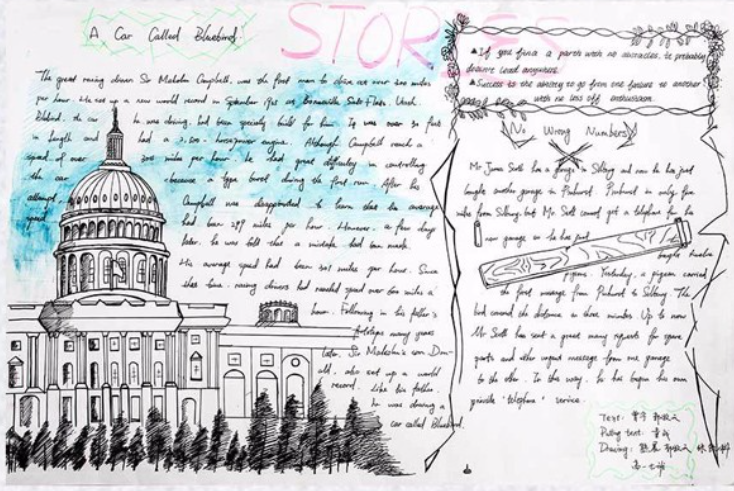 STORIES
A Car Called Bluebird!
The great racing driver Sir Malcolm Campbell was the first man to drive at over 300 miles
per hour. He set up a new world record in September 1935 at Bonneville Salt Flats, Utah.
Bluebird, the car he was driving, had been specially built for him. It was over 30 feet
in length and had a 2,500-horsepower engine. Although Campbell reach a
speed of over 300 miles per hour, he had great difficulty in controlling
the car because a tyre burst during the first run. After his
attempt, Campbell was disappointed to learn that his average
speed had been 299 miles per hour. However, a few days
later, he was told that a mistake had been made.
His average speed had been 301 miles per hour. Since
that time, racing drivers had reached speed over 600 miles a
hour. Following in his father's
footsteps many years
later, Sir Malcolm's son Don-
ald, also set up a world
record. Like his father,
he was driving a
car called Bluebird.
▲If you find a path with no obstacles, it probably
doesn't lead anywhere.
▲Success is the ability to go from one failure to another
with no loss off enthusiasm.
No Wrong Numbers
Mr James Scott has a garage in Silbury and now he has just
bought another garage in Pinhurst. Pinhurst in only five
miles from Silbury, but Mr. Scott cannot get a telephone for his
new garage so he has just
bought twelve
pigeons. Yesterday, a pigeon carried
the first message from Pinhurst to Silbury. The
bird covered the distance in three minutes. Up to now
Mr Scott has sent a great many requests for spare
parts and other urgent message from one garage
to the other. In this way, he has begun his own
private 'telephone' service.
Text:
Ruling text:
Drawing: